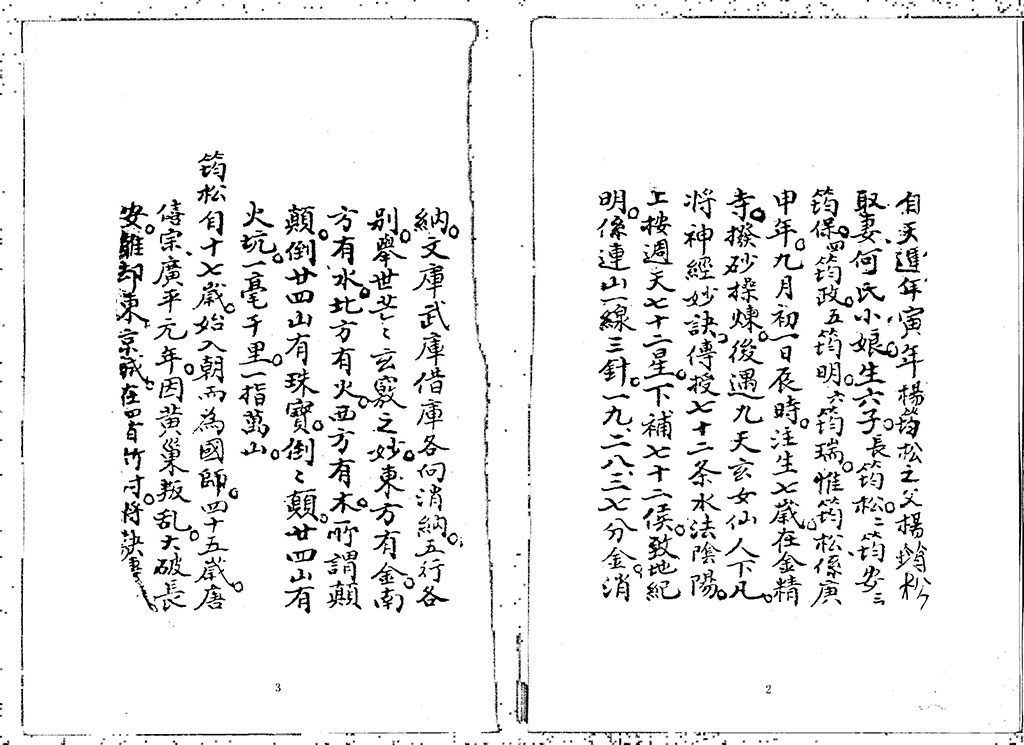 自天運年寅年楊筠松之父楊鈞松
娶妻何氏小娘生六子長筠松二筠安三
筠保四筠政五筠明六筠瑞惟筠松係庚
申年九月初一日辰時注生七歲在金精
寺撥砂操煉後遇九天玄女仙人下凡
將神經妙訣傳授七十二条水法陰陽
上按週天七十二星下補七十二侯致地紀
明係連山一線三針一九二八三七分金消
2
納文庫武庫借庫各向消納五行各
別舉世茫々玄竅之妙東方有金南
方有水北方有火西方有木所謂顛
顛倒廿四山有珠寶倒々顛廿四山有
火坑一毫千里一指萬山
筠松自十七歲始入朝而為國師四十五歲唐
僖宗廣平元年因黃巢叛乱大破長
安離却東京城在四百竹寸將訣
3